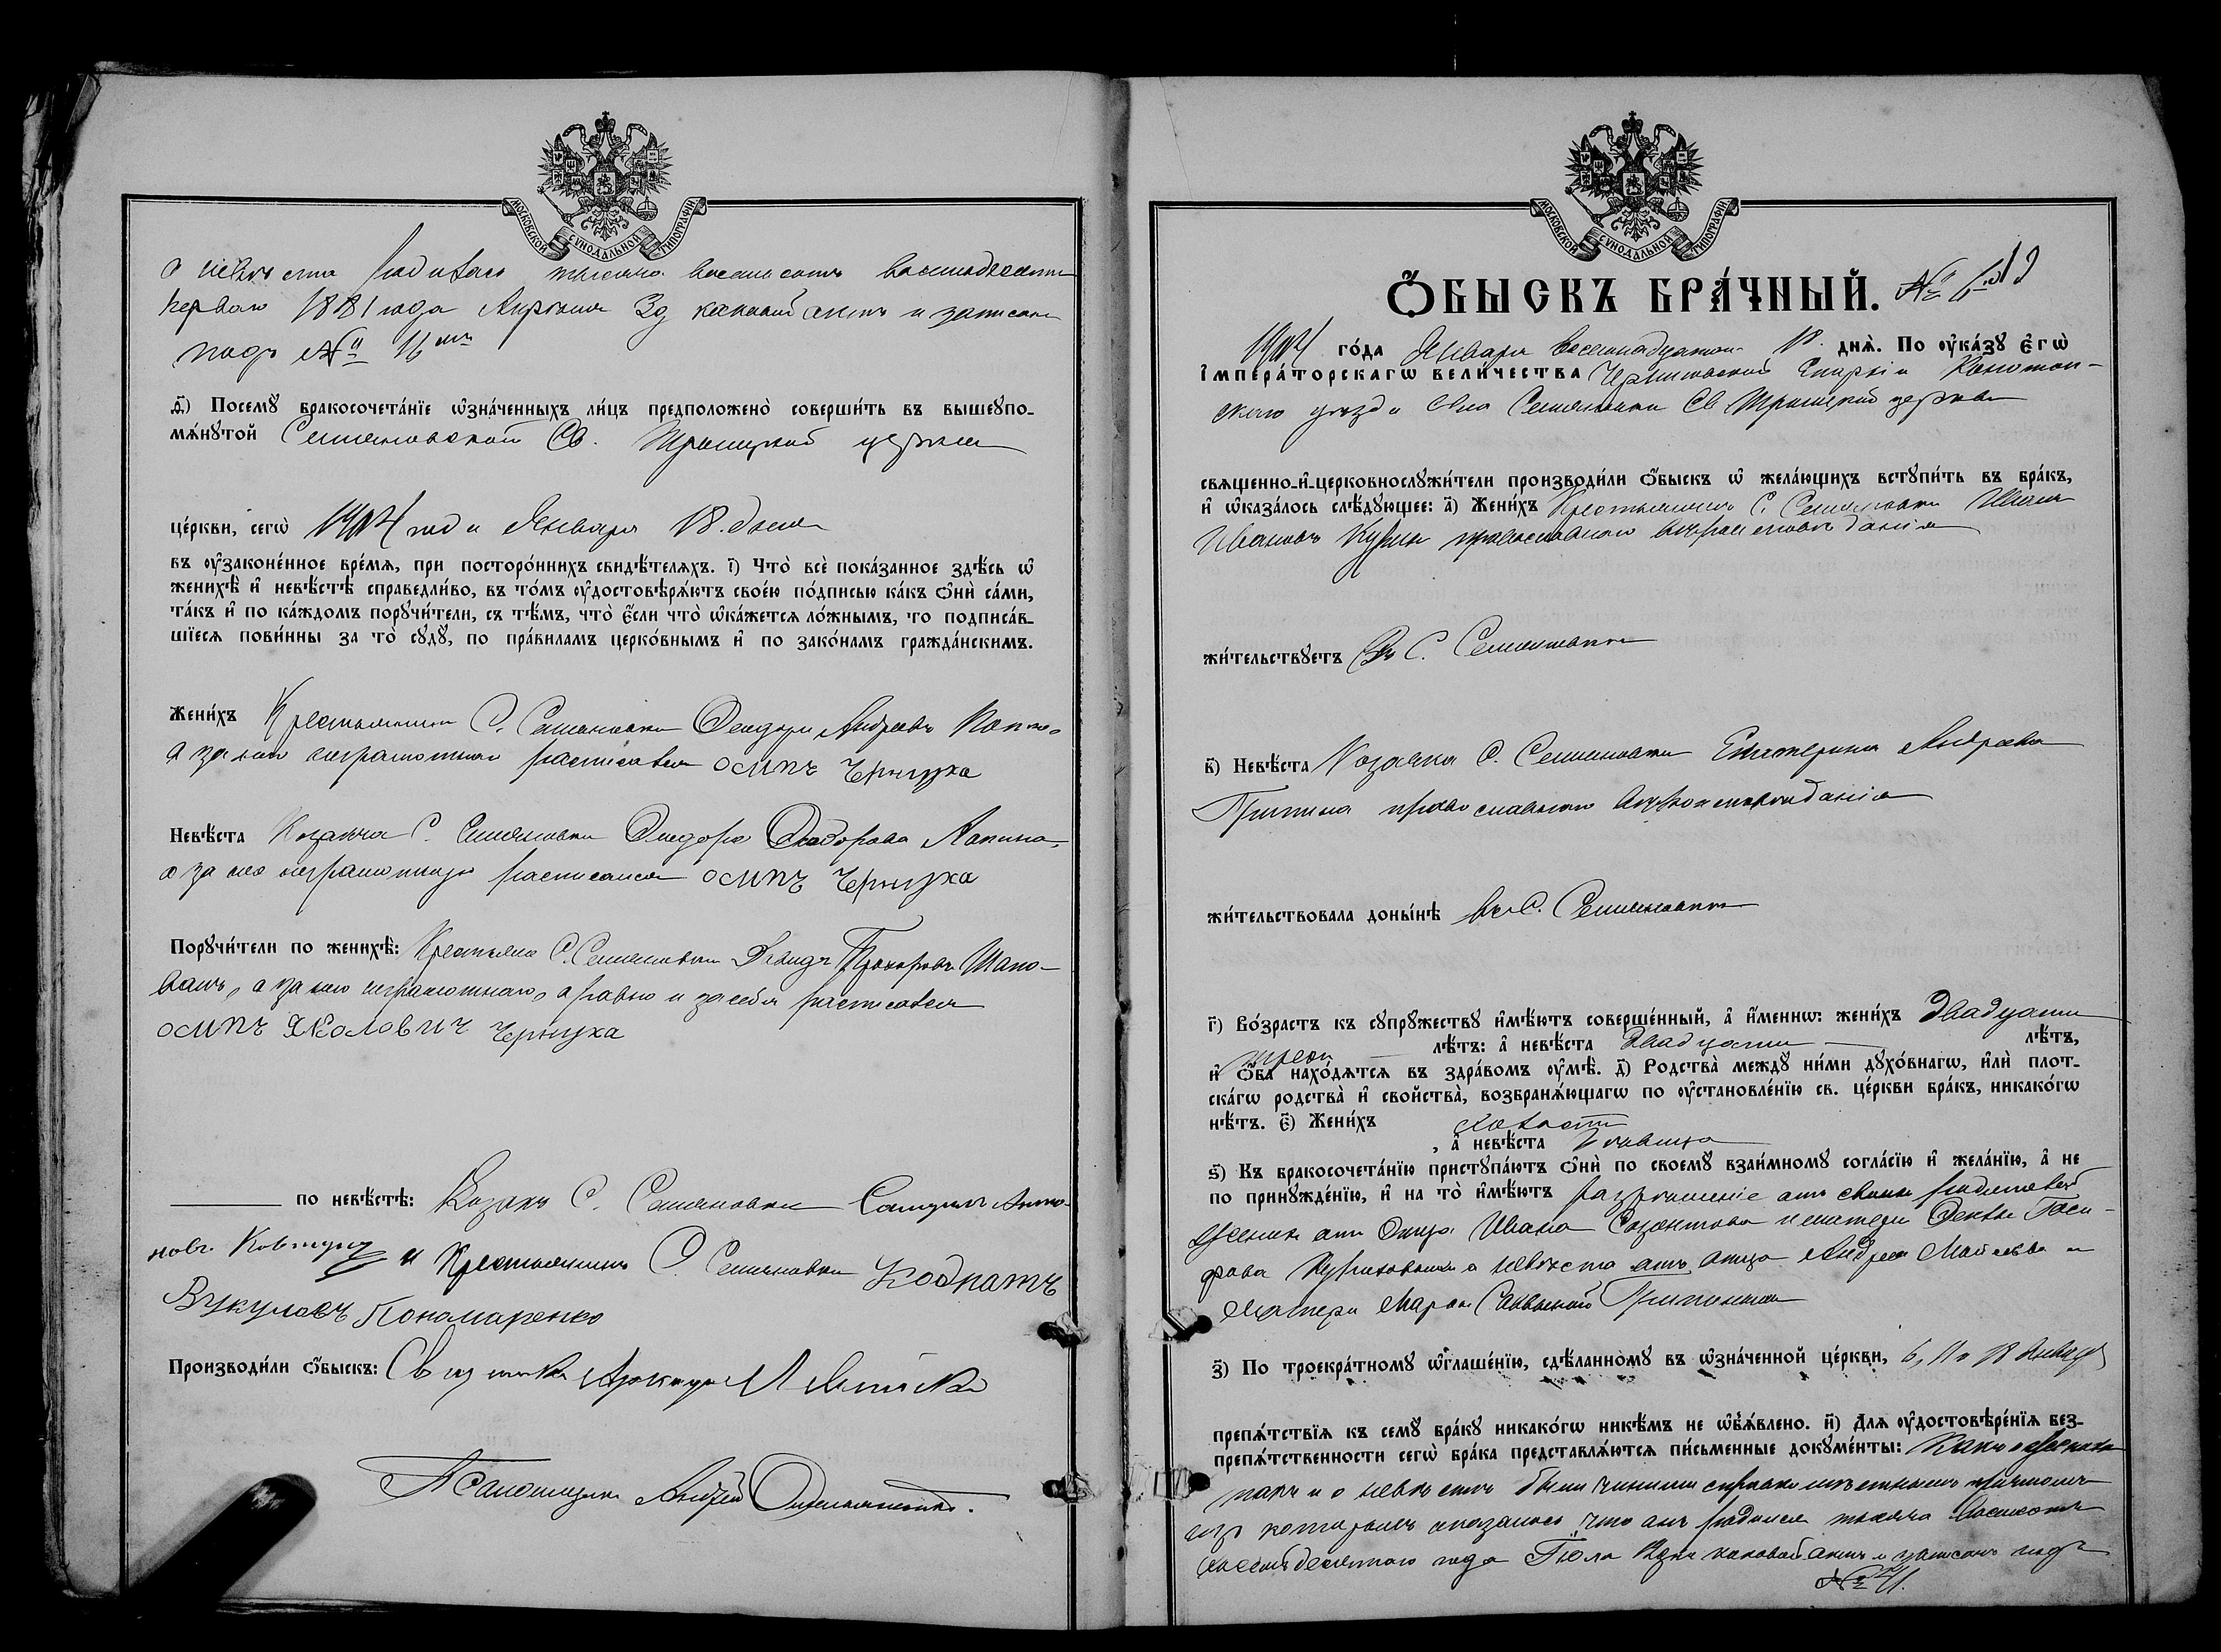 МОСКОВСКОЙ СѴНОДАЛЬНОЙ ТИПОГРАФІИ
о невѣста родилась тысяча восемьсотъ восемьдесятъ
перваго 1881 года Апрѣля 3д каковый актъ и записанъ
подъ № 16мъ
ѳ҃) Посемꙋ̀ бракосочета́нїе ѡ҆зна́ченныхъ ли́цъ предположено̀ соверши́ть въ вышеꙋпо-
мѧ́нꙋтой Семяновской Св. Троицкой церкви
це́ркви, сегѡ̀ 1904 года Января 18. дня
въ ᲂу҆зако́не́нное вре́мѧ, при посторо́ннихъ свидѣ́телѧхъ. і҃) Что̀ всѐ пока́занное здѣ́сь ѡ҆
женихѣ̀ и҆ невѣ́стѣ справедли́во, въ то́мъ ᲂу҆достовѣрѧ́ютъ свое́ю по́дписью ка́къ ѻ҆нѝ са́ми,
та́къ и҆ по ка́ждомъ порꙋчи́тели, съ тѣ́мъ, что̀ є҆́сли что̀ ѡ҆ка́жетсѧ ло́жнымъ, то подписа́в-
шїесѧ пови́нны за то̀ сꙋдꙋ̀, по пра́виламъ церко́внымъ и҆ по зако́намъ гражда́нскимъ.
Жени́хъ Крестьянинъ С. Семяновки Ѳеодоръ Андреевъ
а за него неграмотнаго расписался осипъ Чернуха
Невѣ́ста Козачка С. Семяновки Ѳеодора Ѳеодорова Лапина,
а за нее неграмотную расписался осипъ Чернуха
Порꙋчи́тели по женихѣ̀: Крестьяне С. Семяновки Давидъ Прохоровъ Шапо-
валъ, а за него неграмотнаго, а равно и за себя расписался
осипъ Яколович Чернуха
по невѣ́стѣ: Козакъ С. Семяновки Самуилъ Анто-
новъ Ковтунъ и Крестьянинъ С. Семяновки Кодратъ
Вукуловъ Пономаренко
Производи́ли ѻ҆́быскъ: Священникъ
Псаломщикъ Андрей
МОСКОВСКОЙ СѴНОДАЛЬНОЙ ТИПОГРАФІИ
Ѻ҆́БЫСКЪ БРА́ЧНЫЙ. №
1904 го́да Января восемнадцатаго 18. днѧ̀. По ᲂу҆ка́зꙋ є҆гѡ̀
і҆мпера́торскагѡ вели́чества Черниговской Епархіи Конотоп-
скаго уѣзда села Семяновки Св Троицкой церкви
свѧще́нно-и҆-церковнослꙋжи́тели производи́ли ѻ҆́быскъ ѡ҆ жела́ющихъ встꙋпи́ть въ бра́къ,
и҆ ѡ҆каза́лось слѣ́дꙋющее: а҃) Жени́хъ Крестьянинъ С. Семяновки Иванъ
Ивановъ православнаго вѣроисповѣданія
жи́тельствꙋетъ Въ С. Семяновкѣ
в҃) Невѣ́ста Козачка С. Семяновки Екатерина Андреева
Грипина православнаго вѣроисповѣданія
жи́тельствовала доны́нѣ въ С. Семяновкѣ
г҃) Во́зрастъ къ сꙋпрꙋ́жествꙋ и҆мѣ́ютъ соверше́нный, а҆ и҆́меннѡ: жени́хъ двадцати
трехъ лѣ́тъ: а҆ невѣ́ста двадцати лѣ́тъ,
и҆ ѻ҆́ба нахо́дѧтсѧ въ здра́вомъ ᲂу҆мѣ̀. д҃) Родства̀ междꙋ ни́ми дꙋхо́внагѡ, и҆лѝ плот-
ска́гѡ родства̀ и҆ свойства̀, возбранѧ́ющагѡ по ᲂу҆становле́нїю св. це́ркви бра́къ, никако́гѡ
нѣ́тъ. є҃) Жени́хъ холостъ
, а҆ невѣ́ста дѣвица
ѕ҃) Къ бракосочета́нїю пристꙋпа́ютъ ѻ҆нѝ по своемꙋ̀ взаи́мномꙋ согла́сїю и҆ жела́нїю, а҆ не
по принꙋжде́нїю, и҆ на то̀ и҆мѣ́ютъ разрѣшеніе отъ своихъ родителей
женихъ отъ отца Ивана Созонтова и матери Ѳеклы
а невѣста отъ отца Андрея и
матери Марѳы Саввиной
з҃) По троекра́тномꙋ ѡ҆глаше́нїю, сдѣ́ланномꙋ въ ѡ҆зна́ченной це́ркви, 6, 11 и 18 Января
препѧ́тствїѧ къ семꙋ̀ бра́кꙋ никако́гѡ никѣ́мъ не ѡ҆б̾ѧ́влено. и҃) Длѧ ᲂу҆достовѣре́нїѧ без-
препѧ́тственности сегѡ̀ бра́ка представлѧ́ютсѧ пи́сьменные докꙋме́нты: Какъ о женихѣ
такъ и о невѣстѣ были чинимы справки мѣстнымъ причтомъ
изъ которыхъ оказалось, что онъ родился тысяча восемсотъ
восемьдесятаго года Іюля каковой актъ и записанъ подъ
№